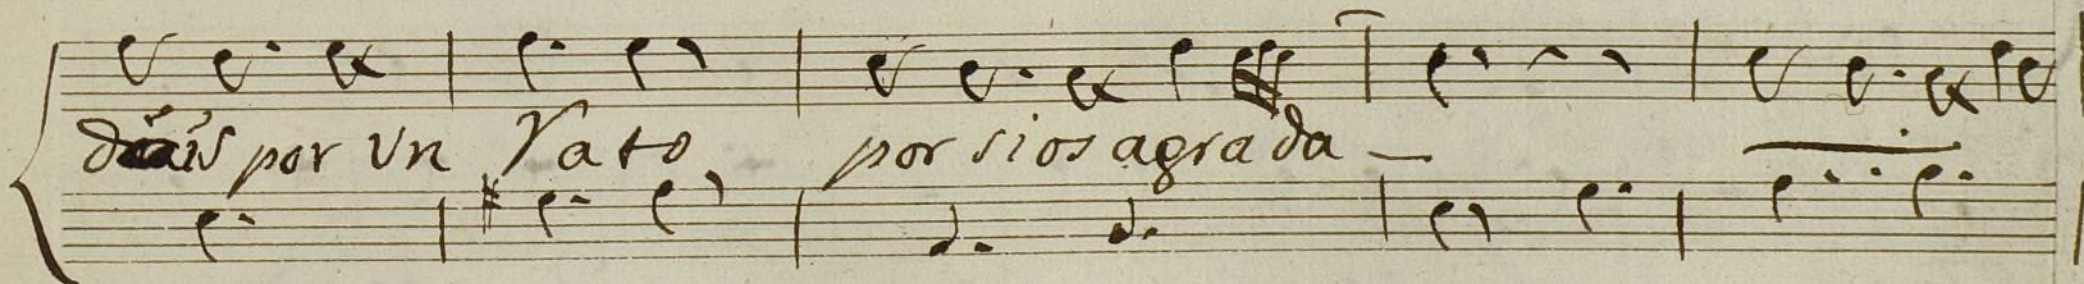 dais por vn Rato por si os agrada